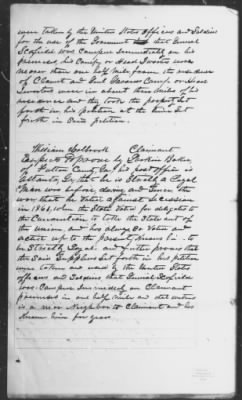 were taken by the United States Officers and Soldiers
for the use of the Government that General
Schofield was Campus Immediately on his
premises his Camp or Head Quarters was
no more than one half mile from the residence
of Claimant and Genl Head
Quarters were in about three miles of his
residence and they took the property set
forth in his petition at the time set
forth in said petition.
William Holbrook Claimant
Expects to prove by Larkin
of Fulton County Ga his post office is
Atlanta Ga that he is Strictly a Loyal
Man was before, during and Since the
war that he Voted against Secession
in 1861, when the State Voted for delegates to
the Convention to take the State out of
the Union and has always So Voted and
acted up to the present, knows him to
be Strictly Loyal and further proves that
the Said Supplies Set forth in his petition
were taken and used by the United States
officers and Soldiers that General Schofield
was Campus Immediately on Claimant
premises in one half mile and that witness
is a near Neighbor to Claimant and has
known him for years